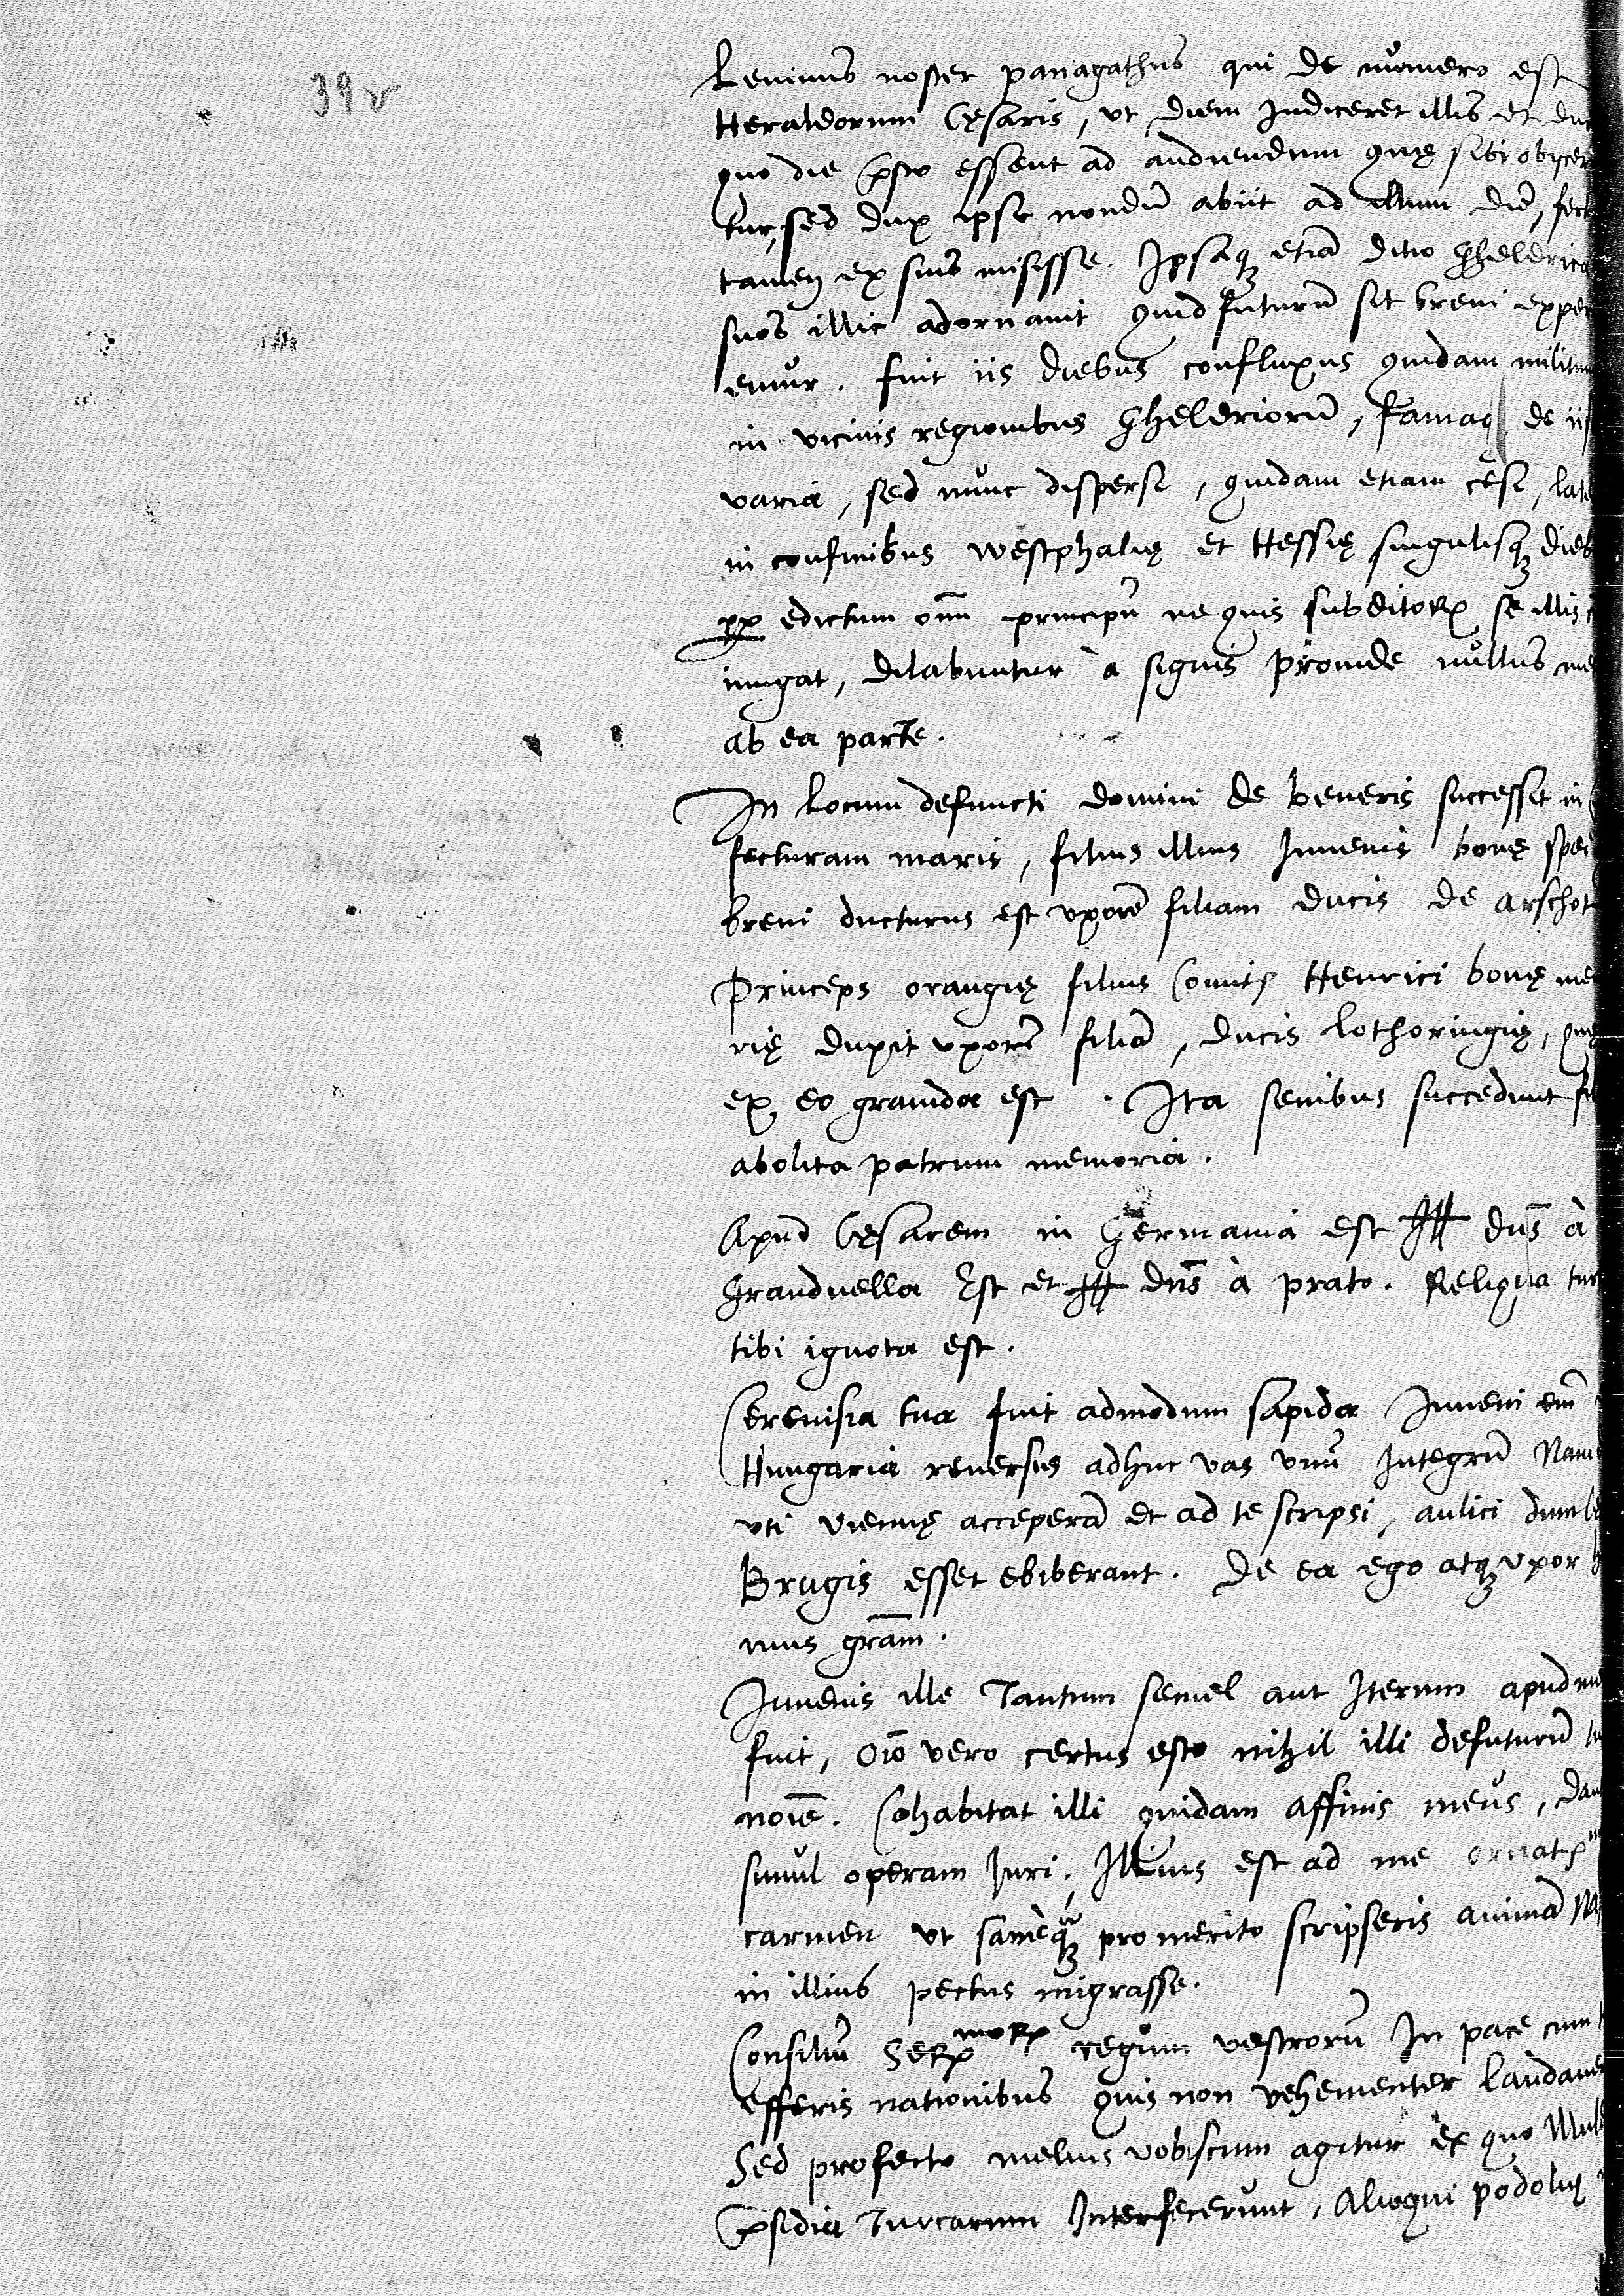 39v
Levinus noster panagathus qui de numero est
Heraldorum Cęsaris, ut diem Indiceret illis et du
quo die pręsto essent ad audiendum quę sibi obiicer
tur, sed dux ipse nondū abiit ad illum diē, fert
tamen ex suis misisse. Ipsaqȝ etiā ditio Gheldrica
suos illic adornavit quid futurū sit brevi exper
emur. fuit iis diebus confluxus quidam militum
in vicinis regionibus Gheldriorū, famaq de iis
varia, sed nunc dispersi, quidam etiam cęsi, late
in confinibus westphalię et Hessię singulisqȝ dieb
pp edictum oīm principū ne quis subditoꝝ se illis
iungat, dilabuntur à signis proinde nullus me
ab ea parte.
In locum defuncti domini de beveris successit in
fecturam maris, filius illius Iuvenis bonę spei
brevi ducturus est uxorē filiam ducis de arschot
Princeps orangię filius Comitis Henrici bonę me
rię duxit uxorē filiā, ducis lothoringię, quę
ex eo gravida est. Ita senibus succedunt fil
abolita patrum memoria.
Apud Cęsarem in Germania est dns̄ à
Grandvella Est et dns̄ à prato. Reliqua tur
tibi ignota est.
Cerevisia tua fuit admodum sapida Inveni em̄
Hungaria reversus adhuc vas unū Integrū Nam
uti viennę acceperā et ad te scripsi, aulici dum
Brugis esset ebiberant. De ea ego atqȝ uxor h
mus grām.
Iuvenis ille Tantum semel aut Iterum apud me
fuit, Oīo vero certus esto nihil illi defuturū
noīe. Cohabitat illi quidam affinis meus, dan
simul operam Iuri, Illius est ad me ornatiss
carmen ut sanèqȝ pro merito scripseris animā Na
in illius pectus migrasse.
Consiliū Serᵐᵒꝝ regum vestrorū In pace cum
efferis nationibus quis non vehementer laudave
Sed profecto melius vobiscum agitur ex quo
pręsidia Turcarum Interfecerunt, Alioqui podolię